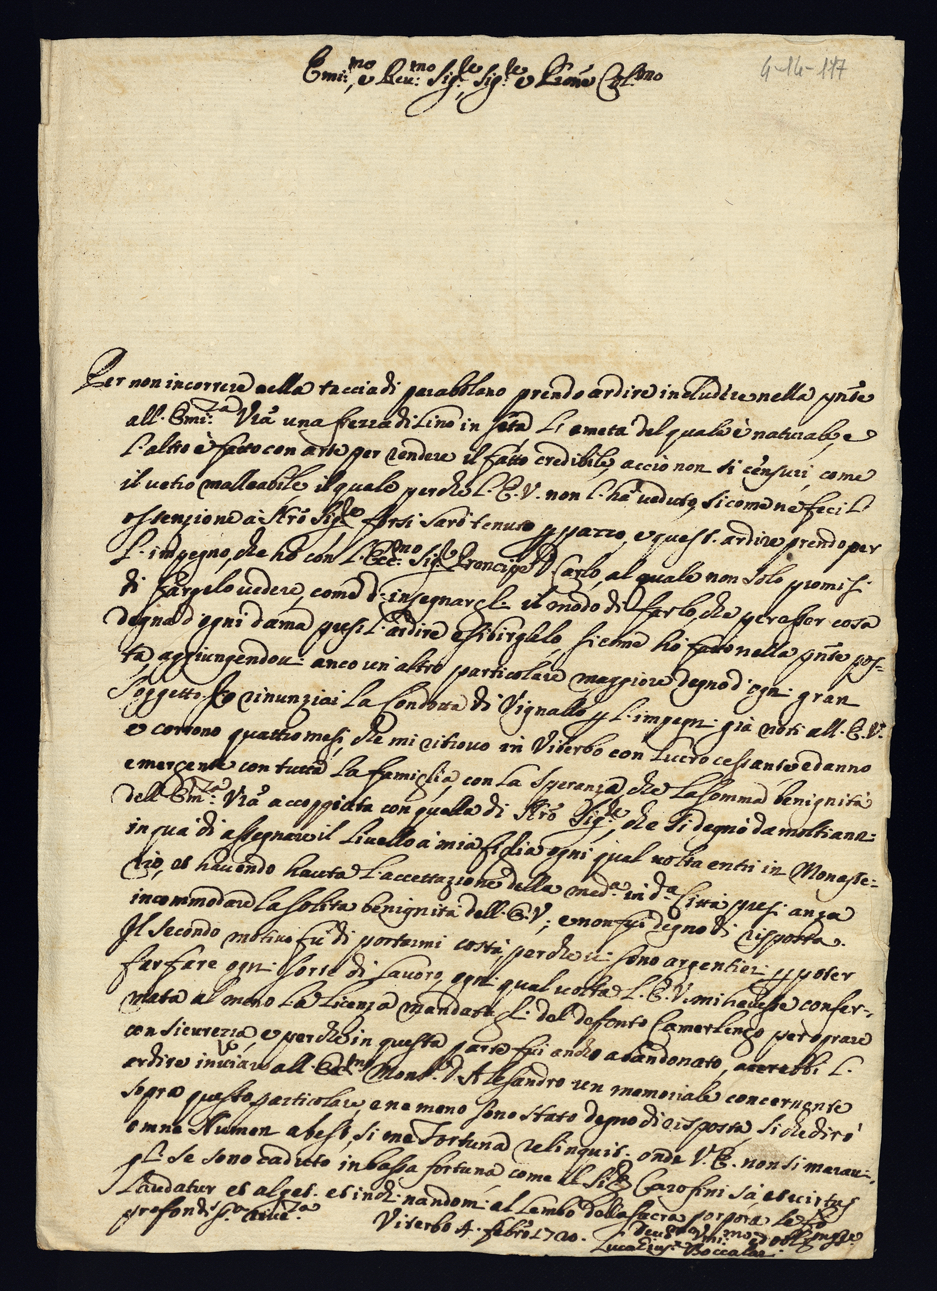 Emi:no, e Reu:mo Sig:re, Sig:re e Prōne Col:mo
4-14-117
Per non incorrere nella taccia di parabolano prendo ardire includere nella pñte
all'Emi:za Vrā una frezza di Lino in seta la metà del quale è naturale, e
l'altro è fatto con arte per rendere il fatto credibile, acciò non si censuri, come
il vetro malleabile, il quale perche l'E.V. non l'ha veduto, sicome ne feci l'
ostenzione a Ntrō Sig:re forsi sarò tenuto p pazzo, e quest'ardire prendo per
l'impegno, che hò con l'Ecc:mo Sig:re Prencipe D. Carlo, al quale non solo promisi
di fargelo vedere, come d'insegnarcli il modo di farlo, che per esser cosa
degna d'ogni dama presi l'ardire esibirglelo, sicome hò fatto nella pñte pos-
ta, aggiungendoui anco un'altro particolare maggiore degno d'ogni gran
soggetto. Io rinunziai la Condotta di Vignallo p l'impegni già noti all'E.V.
e corrono quattro mesi, che mi ritrovo in Viterbo con lucro cessante, e danno
emergente con tutta la famiglia, con la speranza, che la somma benignità
dell'Em:za Vrā accoppiata con quella di Ntrō Sig:re, che si degnò da molti anni
in quà di assegnare il Livello à mia figlia ogni qual volta entri in Monaste-
rio, et havendo hauta l'accettazione della med:a in d:a Città presi anza
incommodare la solita benignità dell'E.V., e non fui degno di risposta.
Il secondo motivo fù di portarmi costà, perche vi sono argentieri p poter
far fare ogni sorte di lavoro, ogni qual volta l'E.V. mi havesse confer-
mata al meno la licenza mandatali del defonto Camerlengo per oprare
con sicurezza, e perche in questa parte fui anco abandonato, acerebbi l'
ardire inviare all'Ecc:mo Mons:r D. Alesandro un memoriale concernente
sopra questo particolare, e ne meno sono stato degno di risposta, si che dirò
omne Numen abest, si me Fortuna relinquit. onde V.E. non si meravi-
gli se sono caduto in bassa fortuna come il Sig:re Carofini sà, et virtus
laudatur et alget. et inchinandomi al lembo della sacra porpora le fo
profondiss:a riue:za
Viterbo 4. febrō 1720.
Deu:mo Vmi:mo ed obb:mo Sre
Luca Gius:e Boccalae